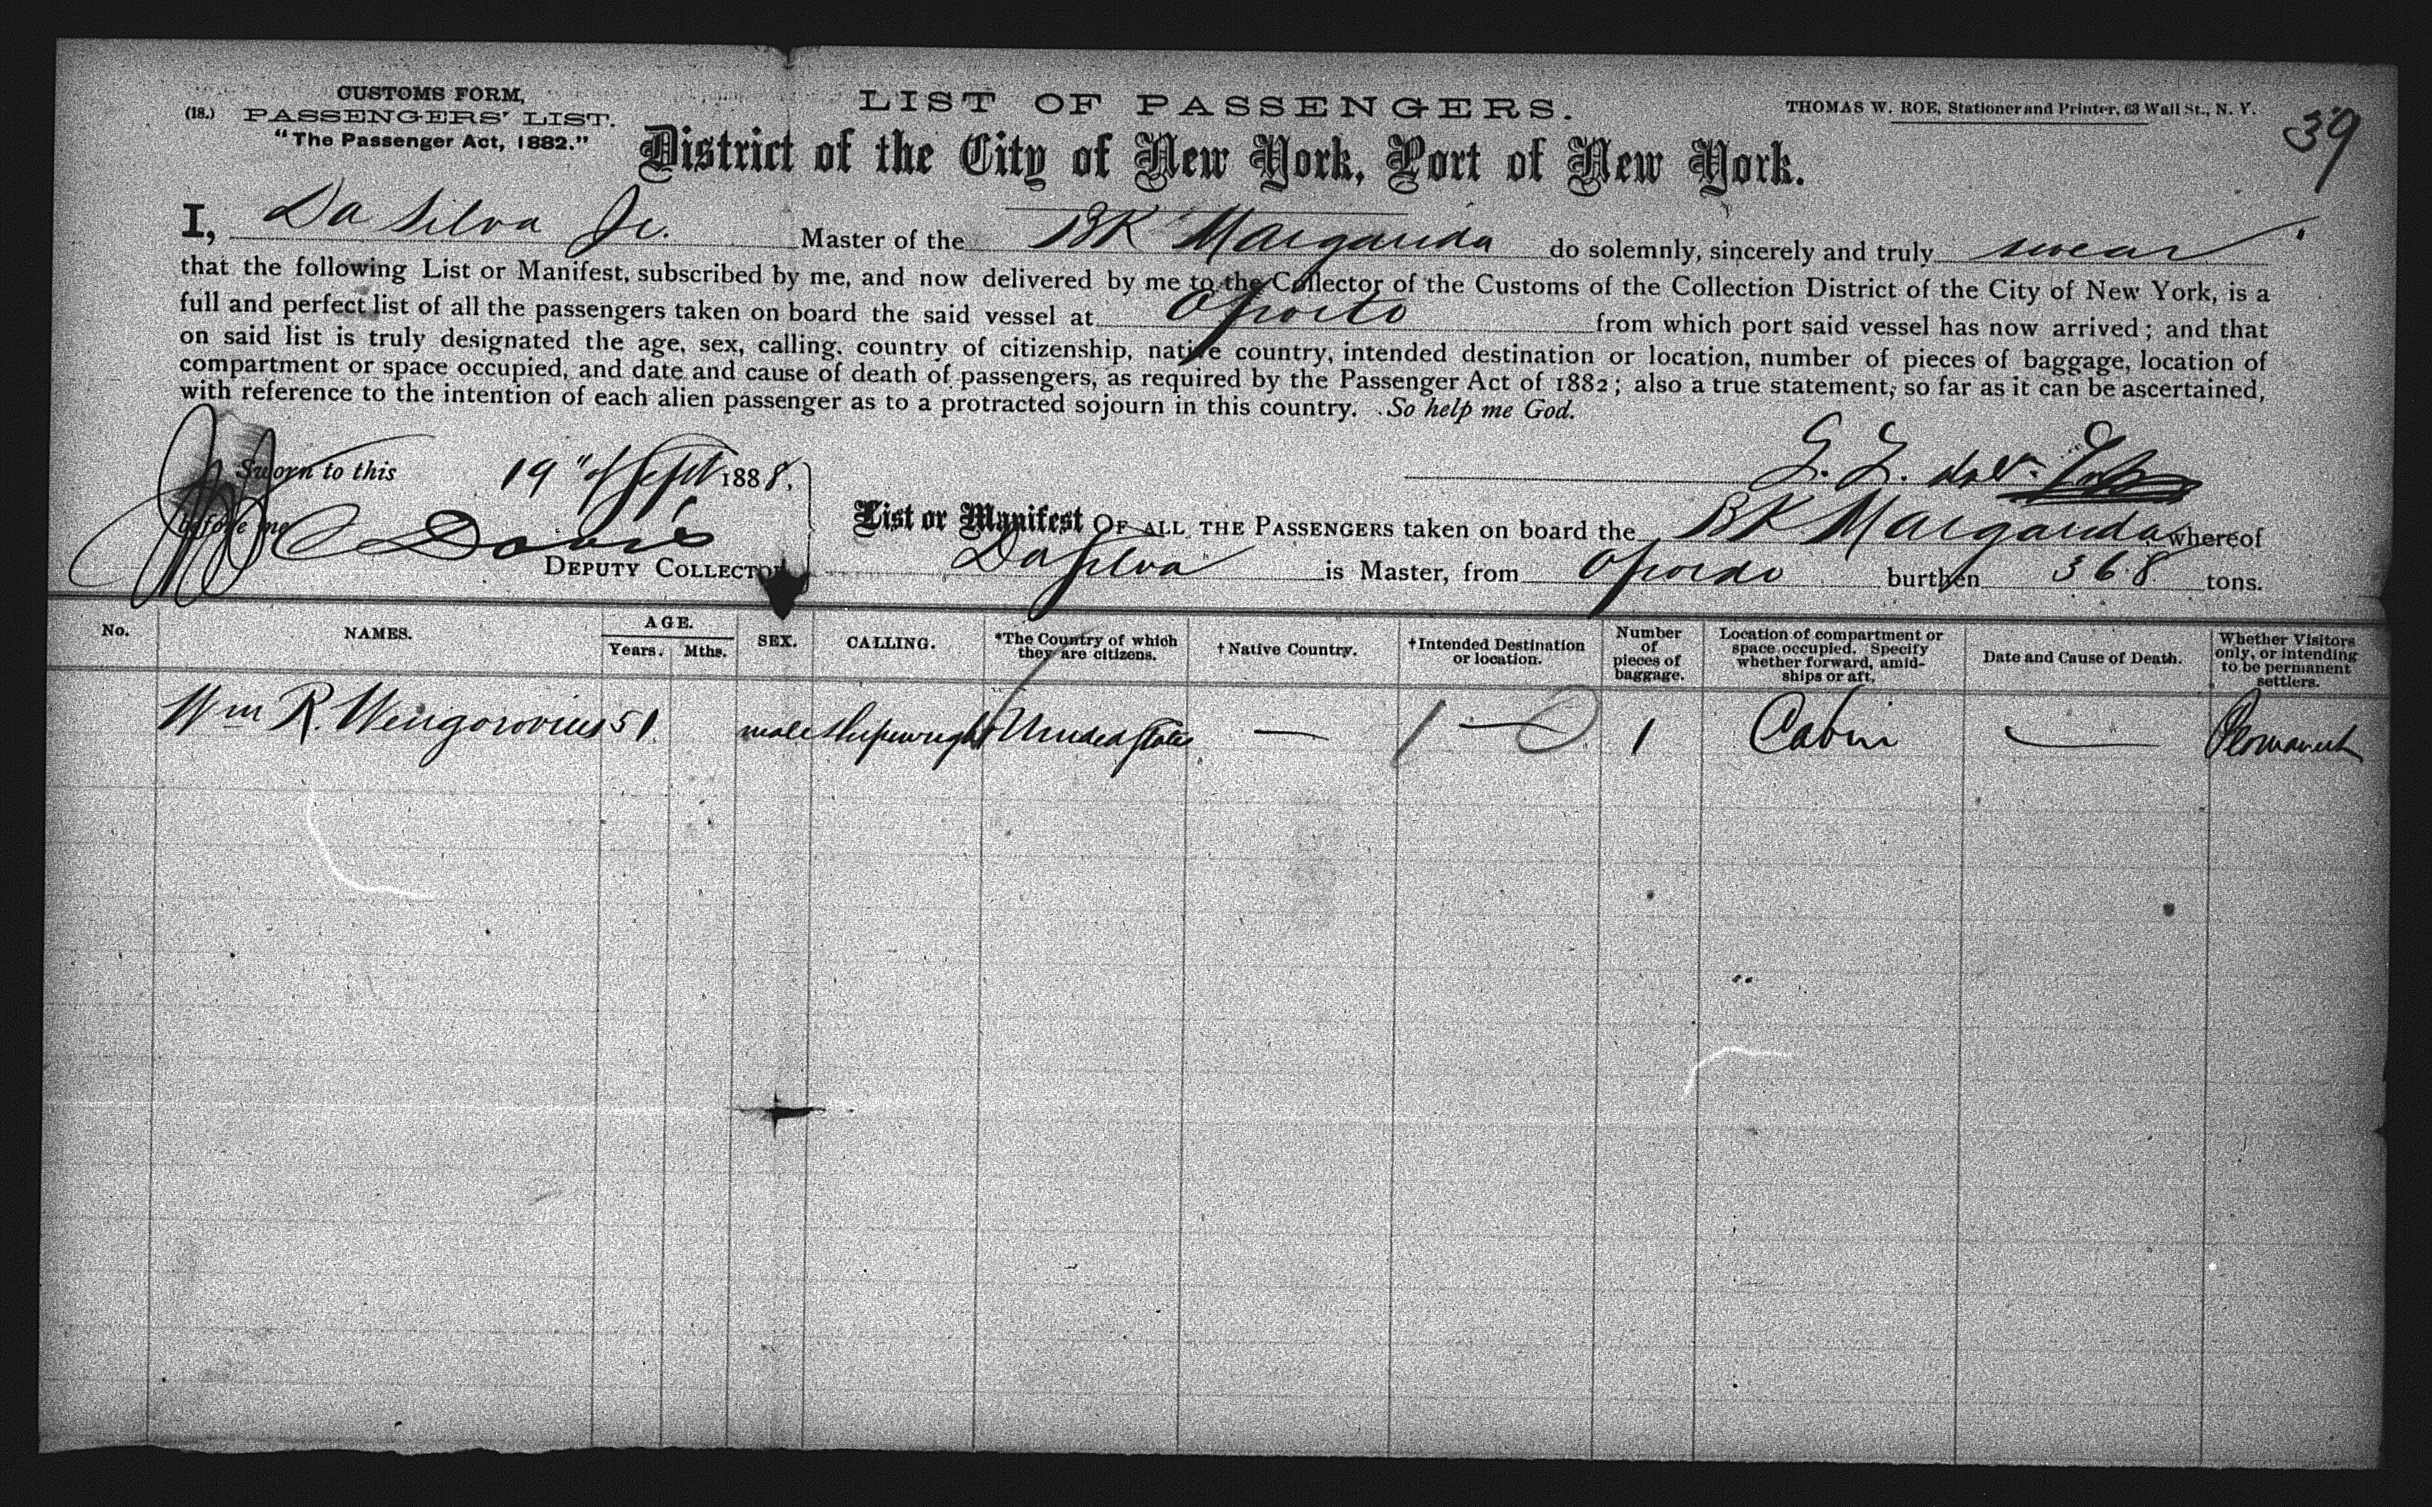 CUSTOMS FORM,
(18.) PASSENGERS' LIST.
"The Passenger Act, 1882."
LIST OF PASSENGERS.
THOMAS W. ROE, Stationer and Printer, 63 Wall St., N. Y.
39
District of the City of New York, Port of New York.
I, Da Silva Jr. Master of the BK Margarida do solemnly, sincerely and truly swear
that the following List or Manifest, subscribed by me, and now delivered by me to the Collector of the Customs of the Collection District of the City of New York, is a
full and perfect list of all the passengers taken on board the said vessel at Oporto from which port said vessel has now arrived; and that
on said list is truly designated the age, sex, calling, country of citizenship, native country, intended destination or location, number of pieces of baggage, location of
compartment or space occupied, and date and cause of death of passengers, as required by the Passenger Act of 1882; also a true statement, so far as it can be ascertained,
with reference to the intention of each alien passenger as to a protracted sojourn in this country. So help me God.
Sworn to this 19" of Sept 1888,
before me Davis
DEPUTY COLLECTOR
List or Manifest OF ALL THE PASSENGERS taken on board the BK Margarida whereof
Da Silva is Master, from Oporto burthen 368 tons.
No. NAMES. AGE. Years. Mths. SEX. CALLING. *The Country of which they are citizens. †Native Country. †Intended Destination or location. Number of pieces of baggage. Location of compartment or space occupied. Specify whether forward, amidships or aft. Date and Cause of Death. Whether Visitors only, or intending to be permanent settlers.
Wm R. Wengorovius 51 male Shipwright United States — 1 — 0 1 Cabin — Permanent